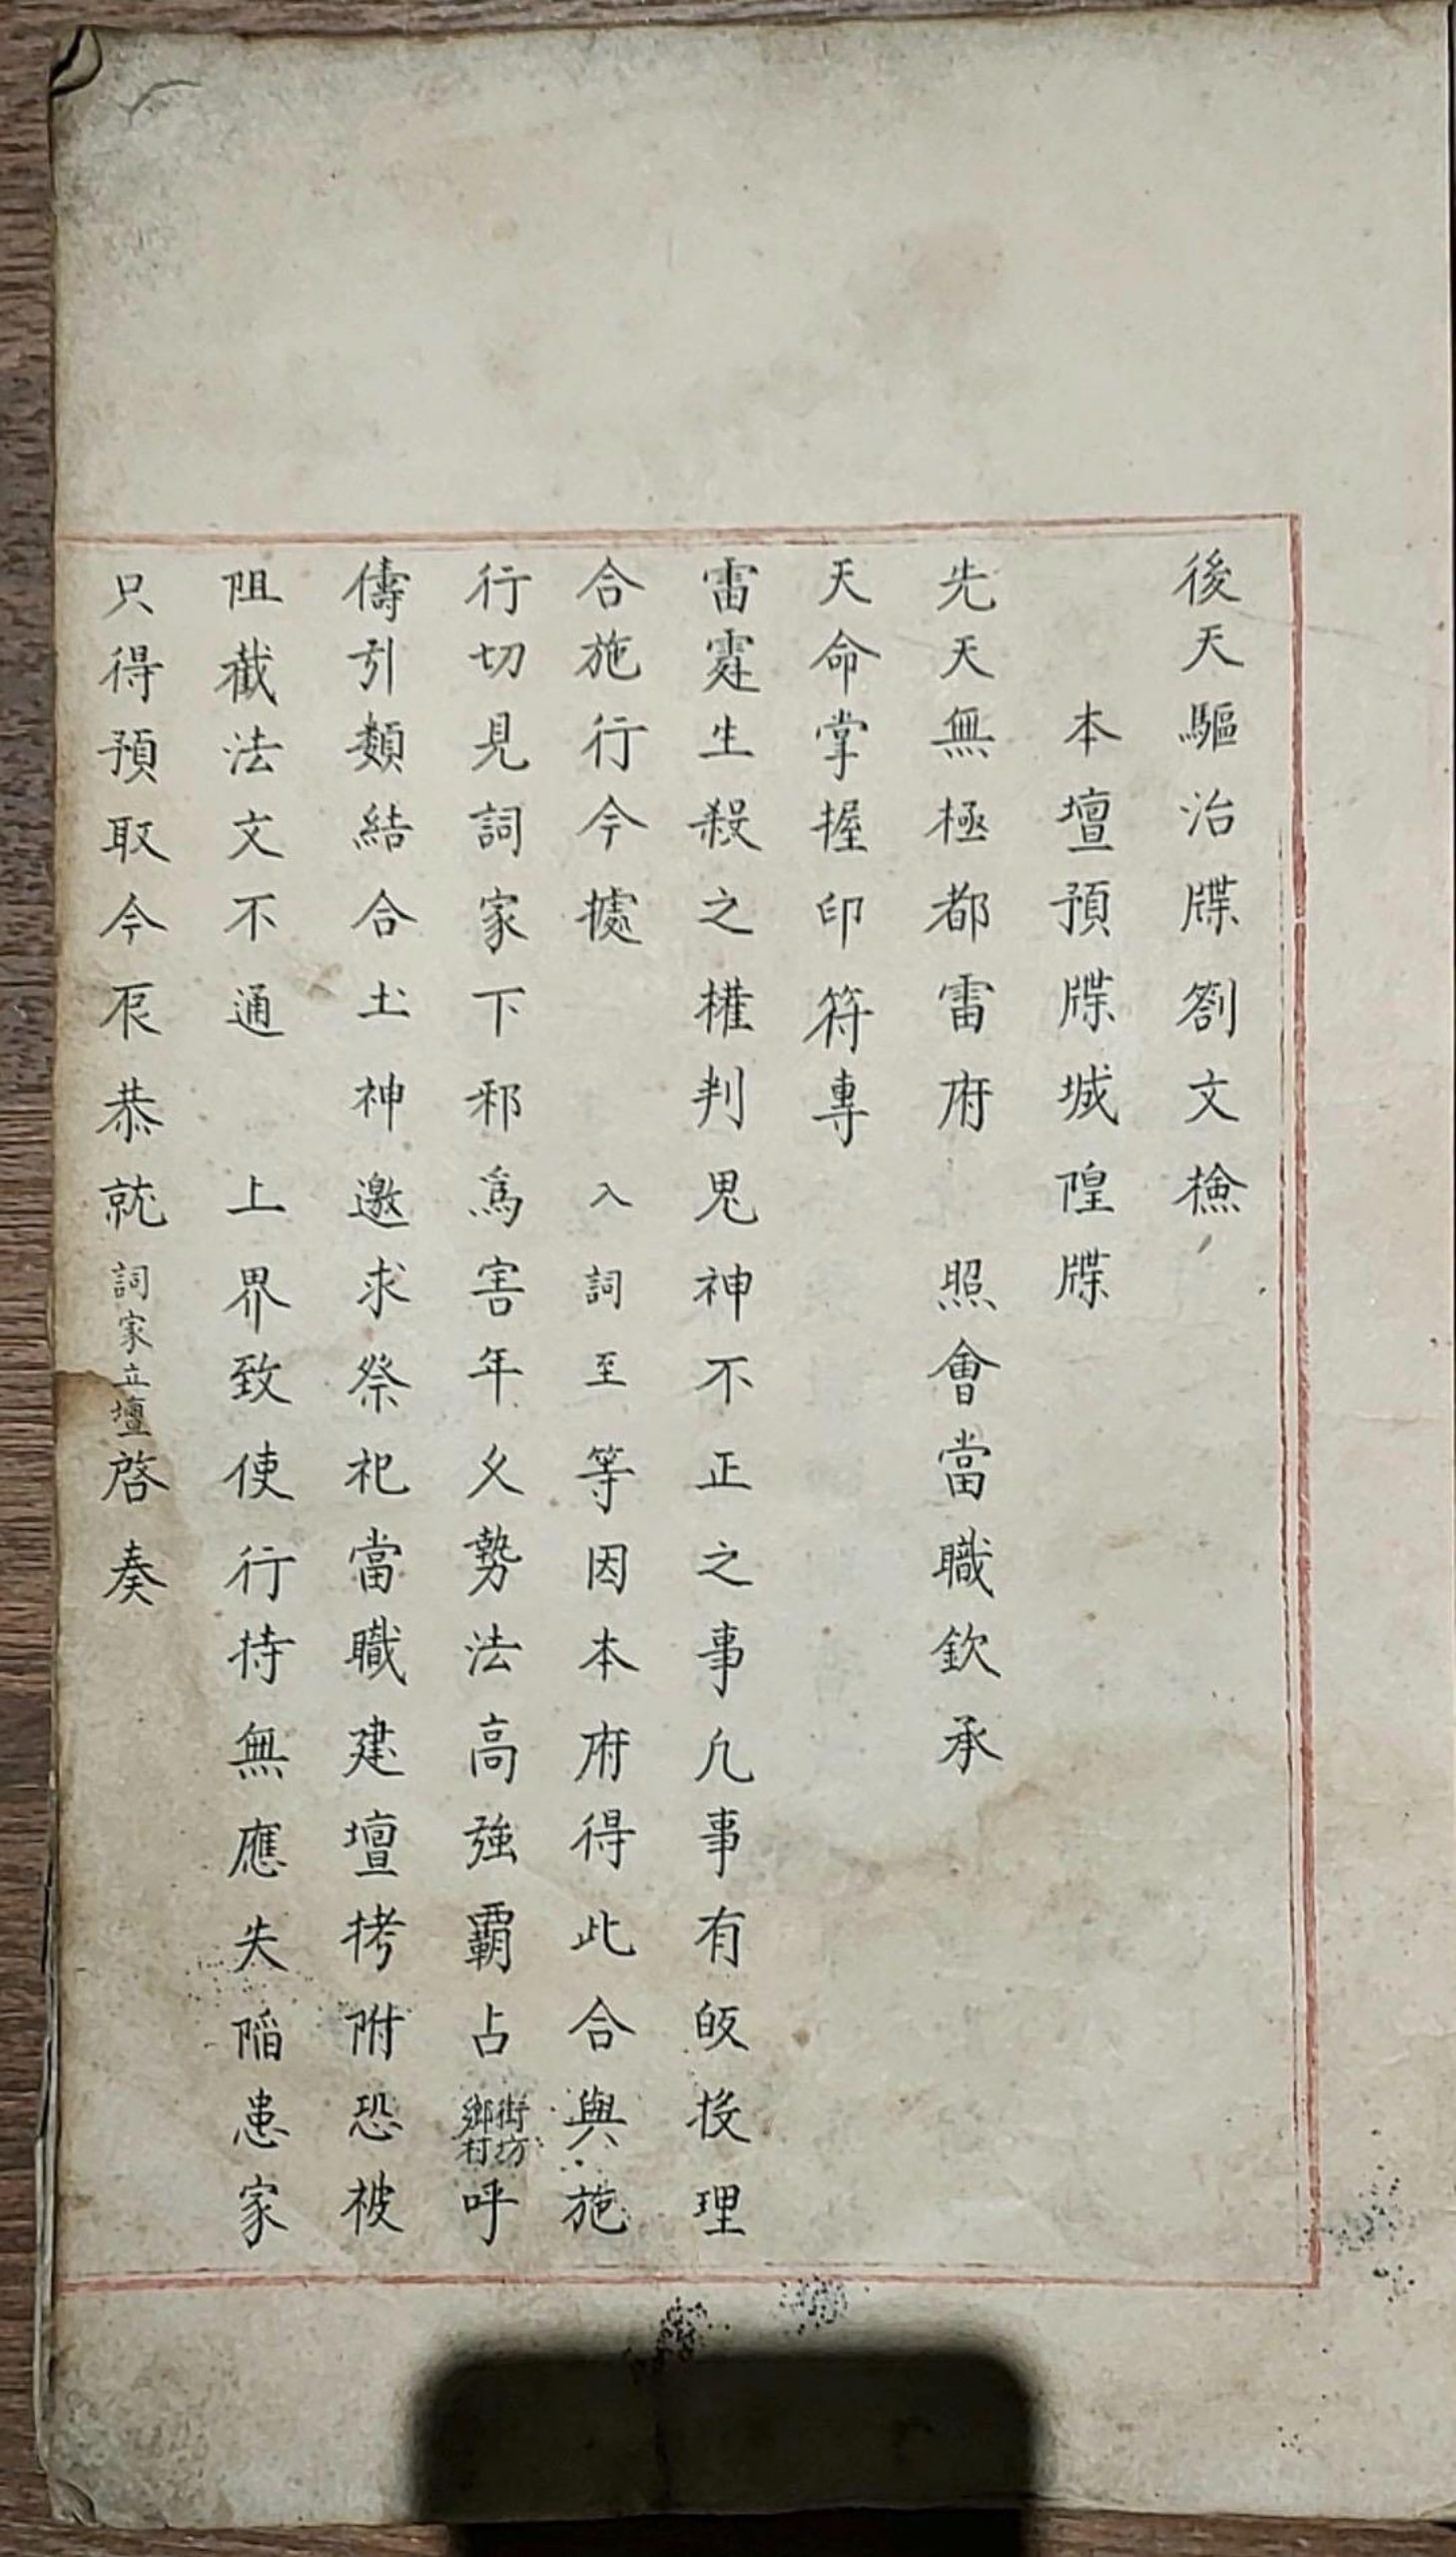 後天驅治牒劄文檢
本壇預牒城隍牒
先天無極都雷府　照會當職欽承
天命掌握印符專
雷霆生殺之權判鬼神不正之事凡事有皈投理
合施行今據　入詞至等因本府得此合與施
行切見詞家下邪為害年久勢法高強覇占街坊鄉村呼
儔引類結合土神邀求祭祀當職建壇拷附恐被
阻截法文不通　上界致使行持無應失陷患家
只得預取今辰恭就詞家立壇啓奏